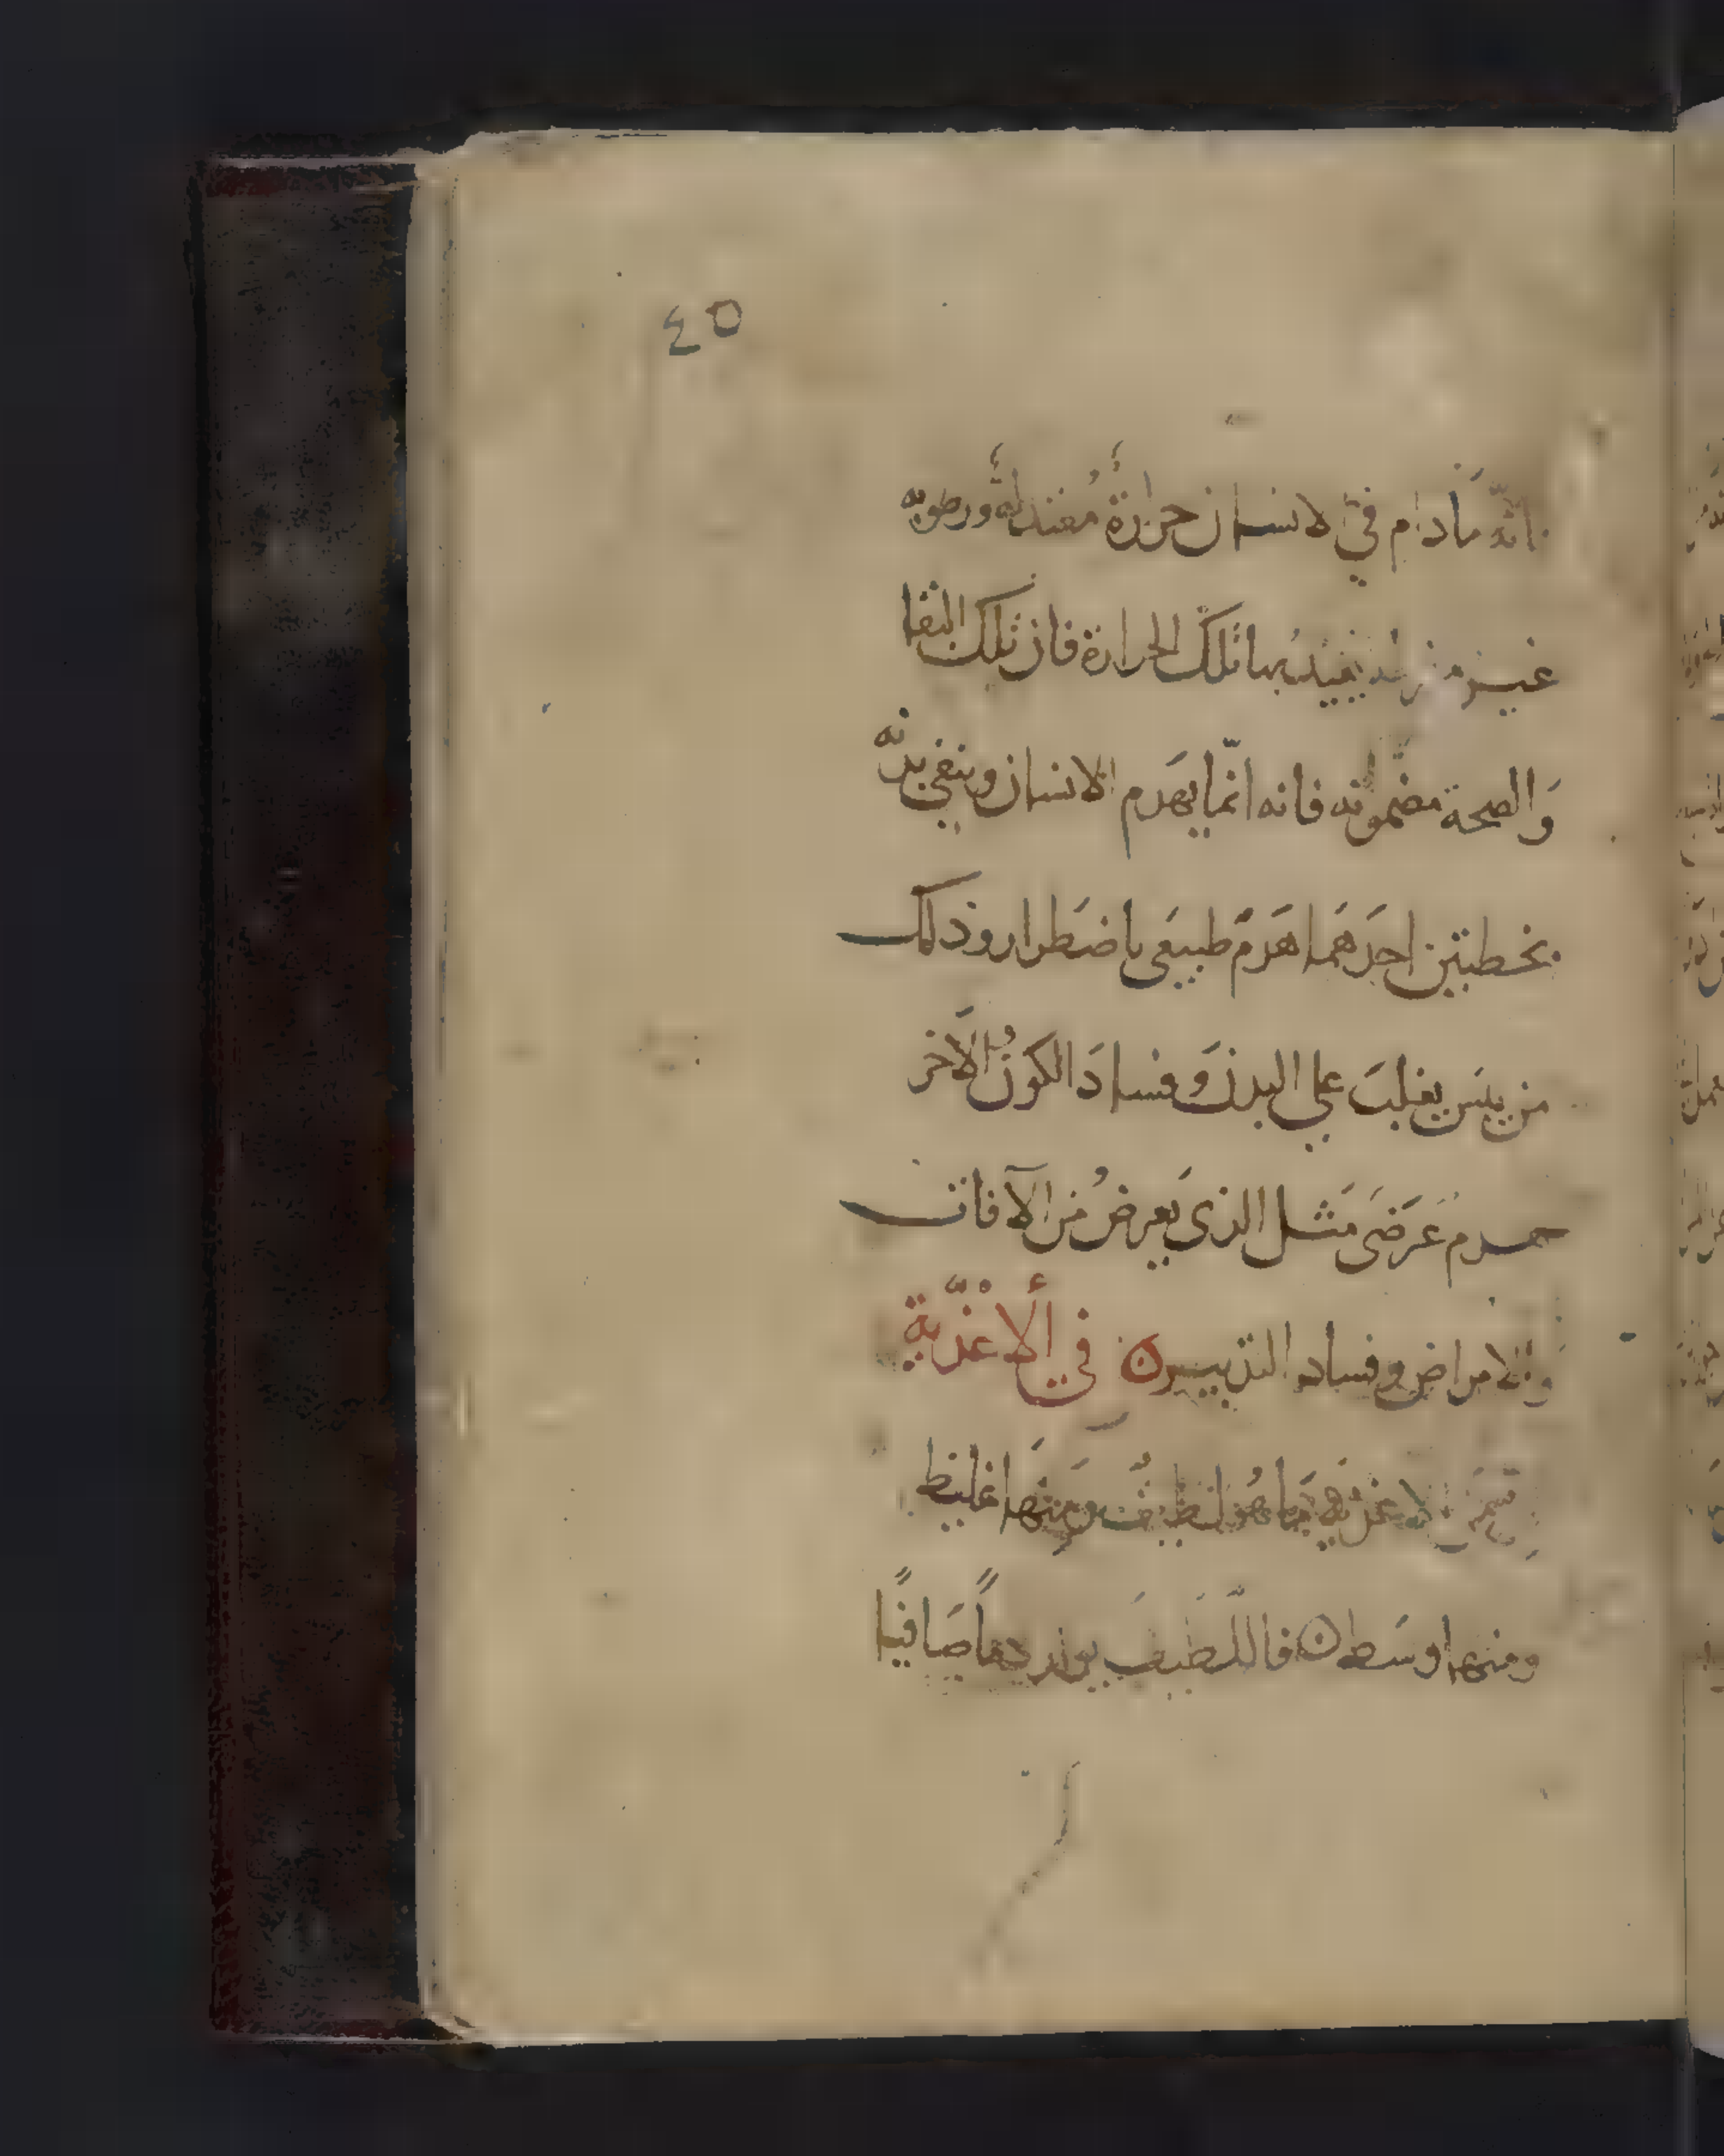 ٤٥
انّه مَا دام في الانسان حرارةٌ مُعتدلةٌ ورطوبه
غير يفيدُ بها تلكَ الحرارة فان تلك البقا
وَالصحة مضمونه فانه انّما يهَدم الانسان وينفي بدنه
بخطتين احدَهمَا هَدمٌ طبيعَي باضطَرار وذلك
من يبسَ يغلبَ علي البدن وَفسادَ الكونُ الآخر
هدم عَرَضَي مَثل الذي يَعرِضُ من الآفات
والامراض وفساد التدبير ۞ في ألاغْذّية
الاغذيه مَا هُو لطيفٌ وَمِنهَا غليظ
ومنها وسَط ۞ فاللّطَيفَ يولد دمًا صَافيًا